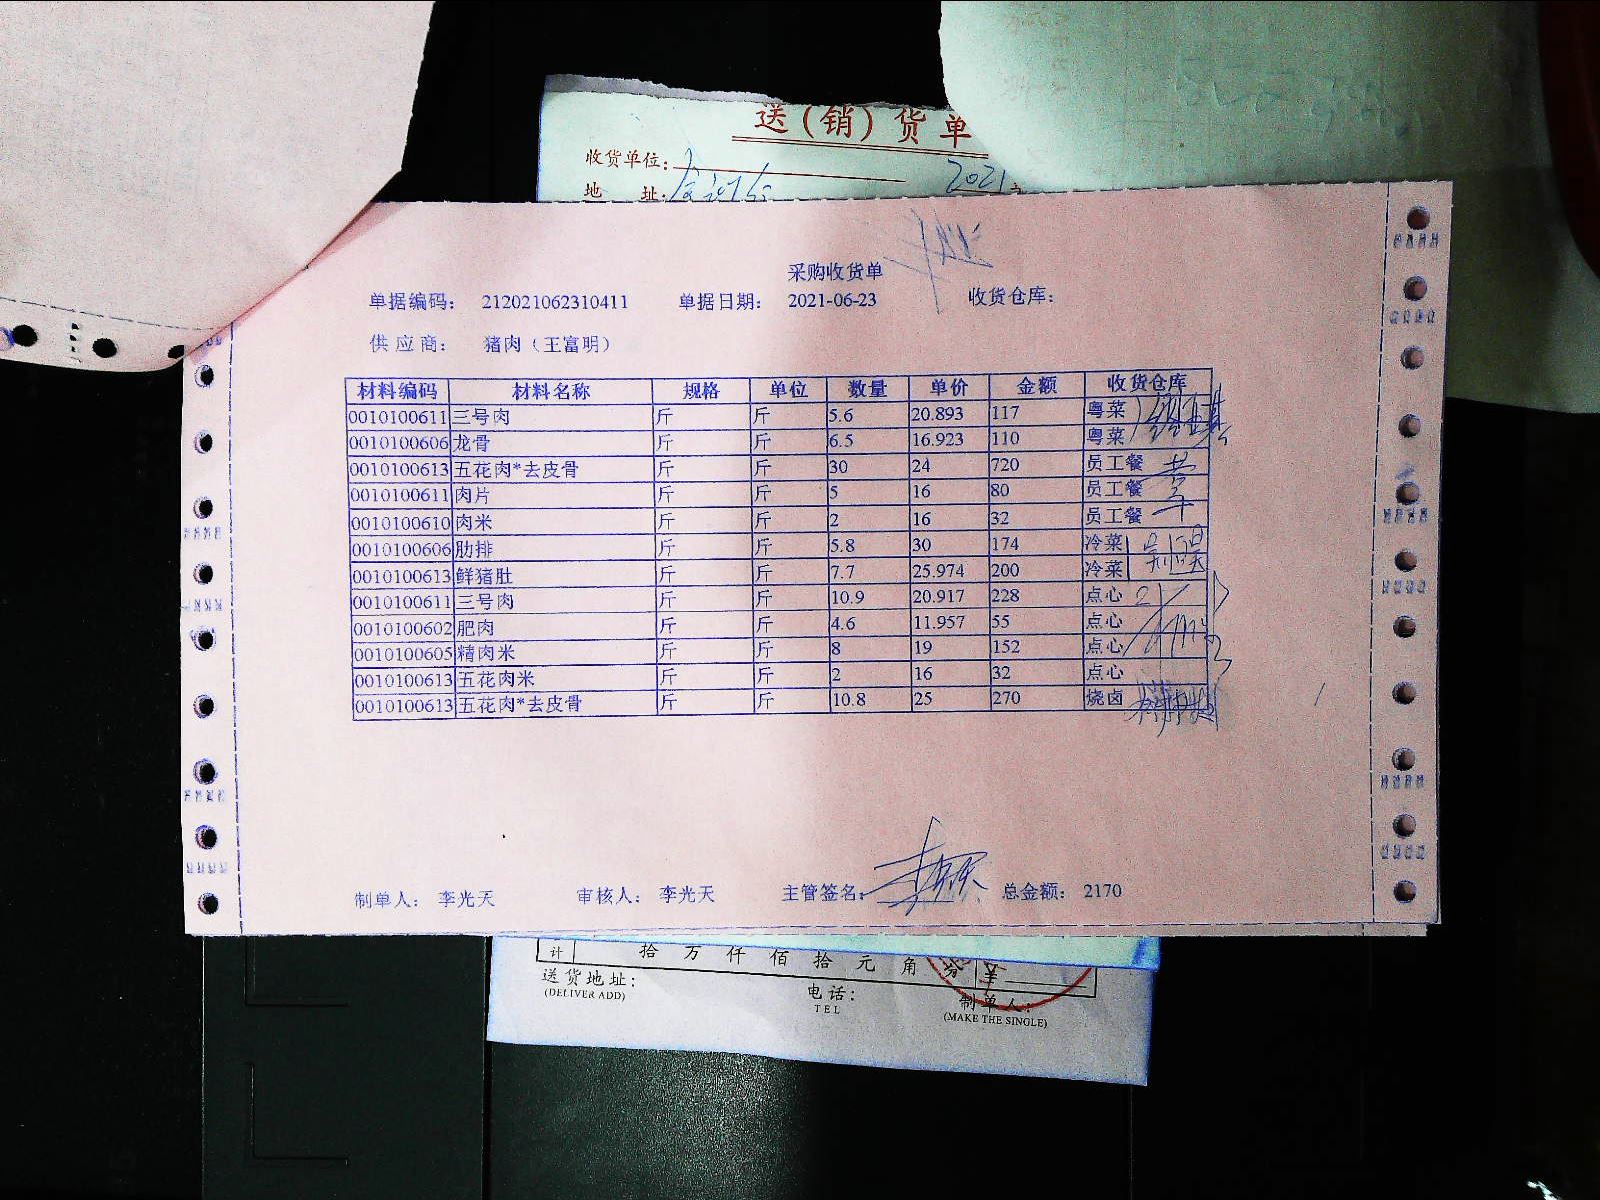 送(销)货单
收货单位:
2021
地 址:
采购收货单
单据编码: 212021062310411 单据日期: 2021-06-23 收货仓库:
供应商: 猪肉（王富明）
材料编码 材料名称 规格 单位 数量 单价 金额 收货仓库
0010100611 三号肉 斤 斤 5.6 20.893 117 粤菜
0010100606 龙骨 斤 斤 6.5 16.923 110 粤菜
0010100613 五花肉*去皮骨 斤 斤 30 24 720 员工餐
0010100611 肉片 斤 斤 5 16 80 员工餐
0010100610 肉米 斤 斤 2 16 32 员工餐
0010100606 肋排 斤 斤 5.8 30 174 冷菜
0010100613 鲜猪肚 斤 斤 7.7 25.974 200 冷菜
0010100611 三号肉 斤 斤 10.9 20.917 228 点心
0010100602 肥肉 斤 斤 4.6 11.957 55 点心
0010100605 精肉米 斤 斤 8 19 152 点心
0010100613 五花肉米 斤 斤 2 16 32 点心
0010100613 五花肉*去皮骨 斤 斤 10.8 25 270 烧卤
制单人: 李光天 审核人: 李光天 主管签名: 总金额: 2170
计 拾 万 仟 佰 拾 元 角
送货地址: 电话: 制单人:
(DELIVER ADD) TEL (MAKE THE SINGLE)